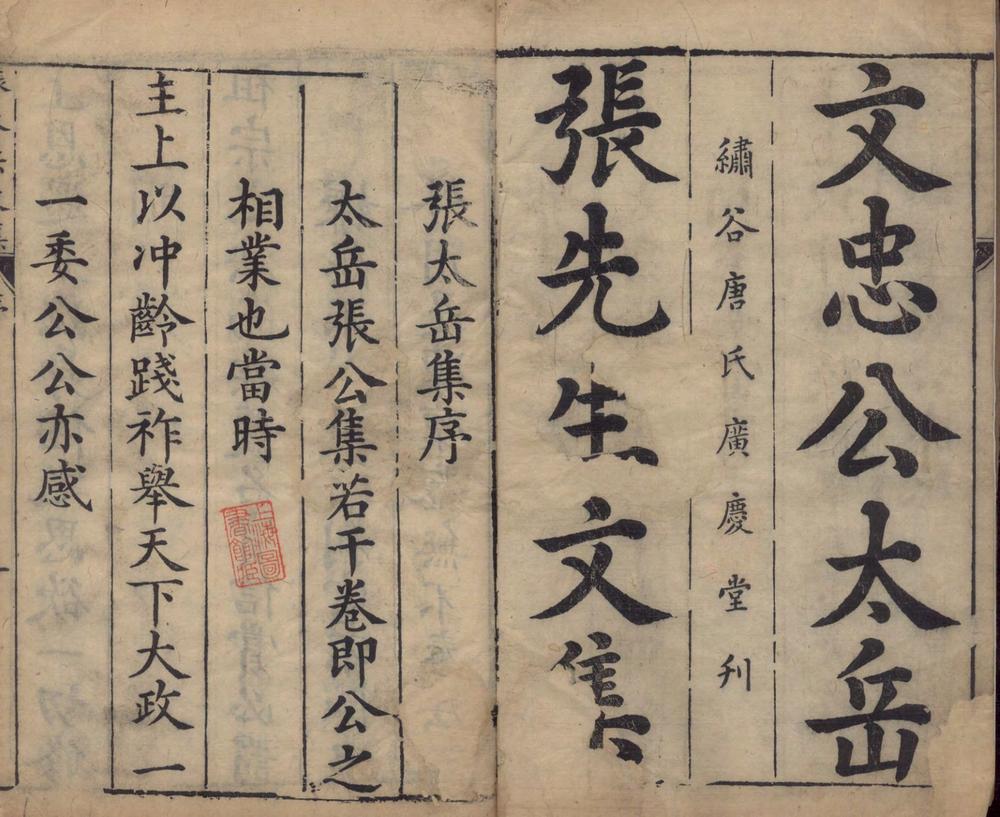 文忠公太岳
繡谷唐氏廣慶堂刊
張先生文集
張太岳集序
太岳張公集若干卷即公之
相業也當時
主上以冲齡踐祚舉天下大政一
一委公公亦感
上海圖書館藏